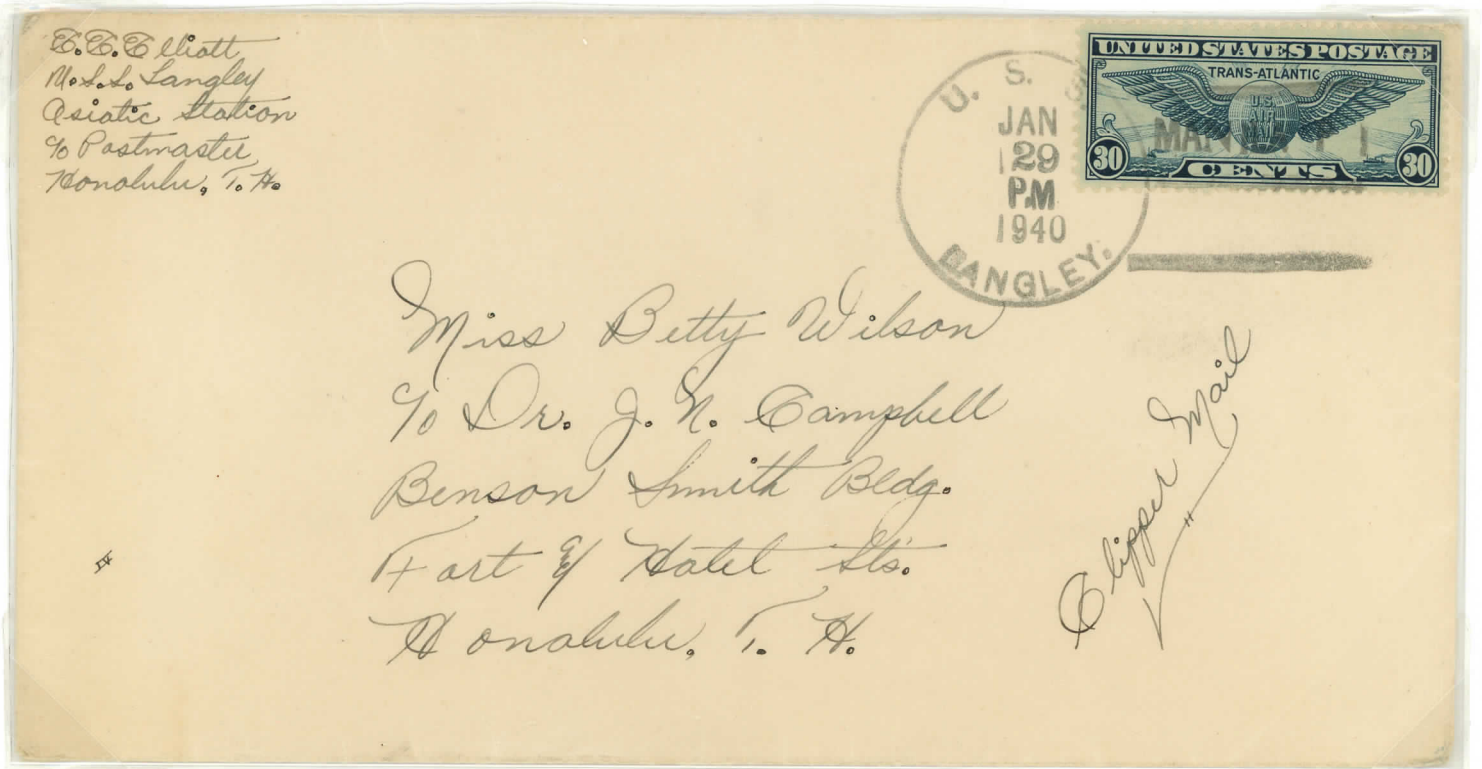 C.C. Elliott
U.S.S. Langley
Asiatic Station
℅ Postmaster
Honolulu, T. H.
U. S. S.
JAN
29
P.M
1940
LANGLEY.
UNITED STATES POSTAGE
TRANS-ATLANTIC
U.S.
AIR
MAIL
30 CENTS 30
Miss Betty Wilson
℅ Dr. J. N. Campbell
Benson Smith Bldg.
Fort & Hotel Sts.
Honolulu, T. H.
Clipper Mail